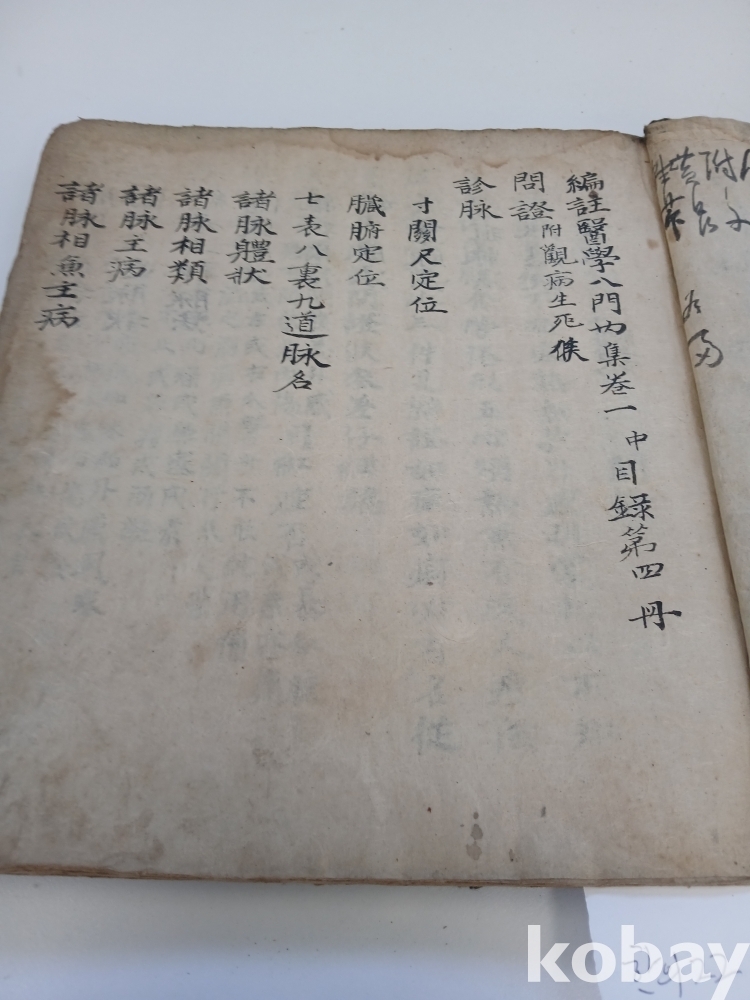 編註醫學入門內集卷一中目錄第四冊
問證附觀病生死候
診脉
寸關尺定位
臟腑定位
七表八裏九道脉名
諸脉軆狀
諸脉相類
諸脉主病
諸脉相兼主病
kobay